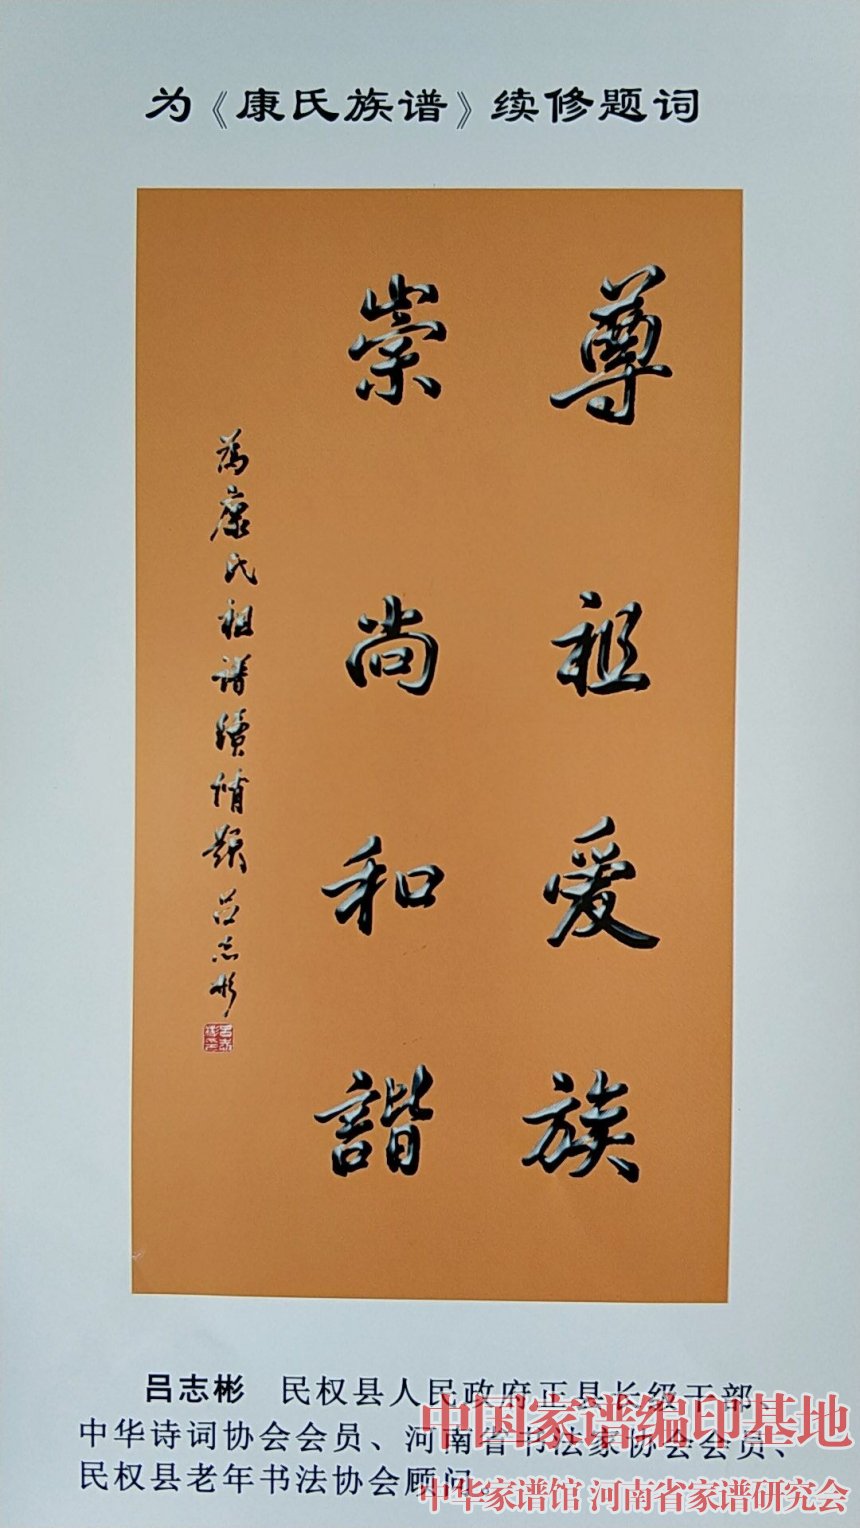 为《康氏族谱》续修题词
尊祖爱族
崇尚和諧
為康氏祖譜續脩題 吕志彬
吕志彬 民权县人民政府正县长级干部、
中华诗词协会会员、河南省书法家协会会员、
民权县老年书法协会顾问。
中国家谱编印基地
中华家谱馆 河南省家谱研究会